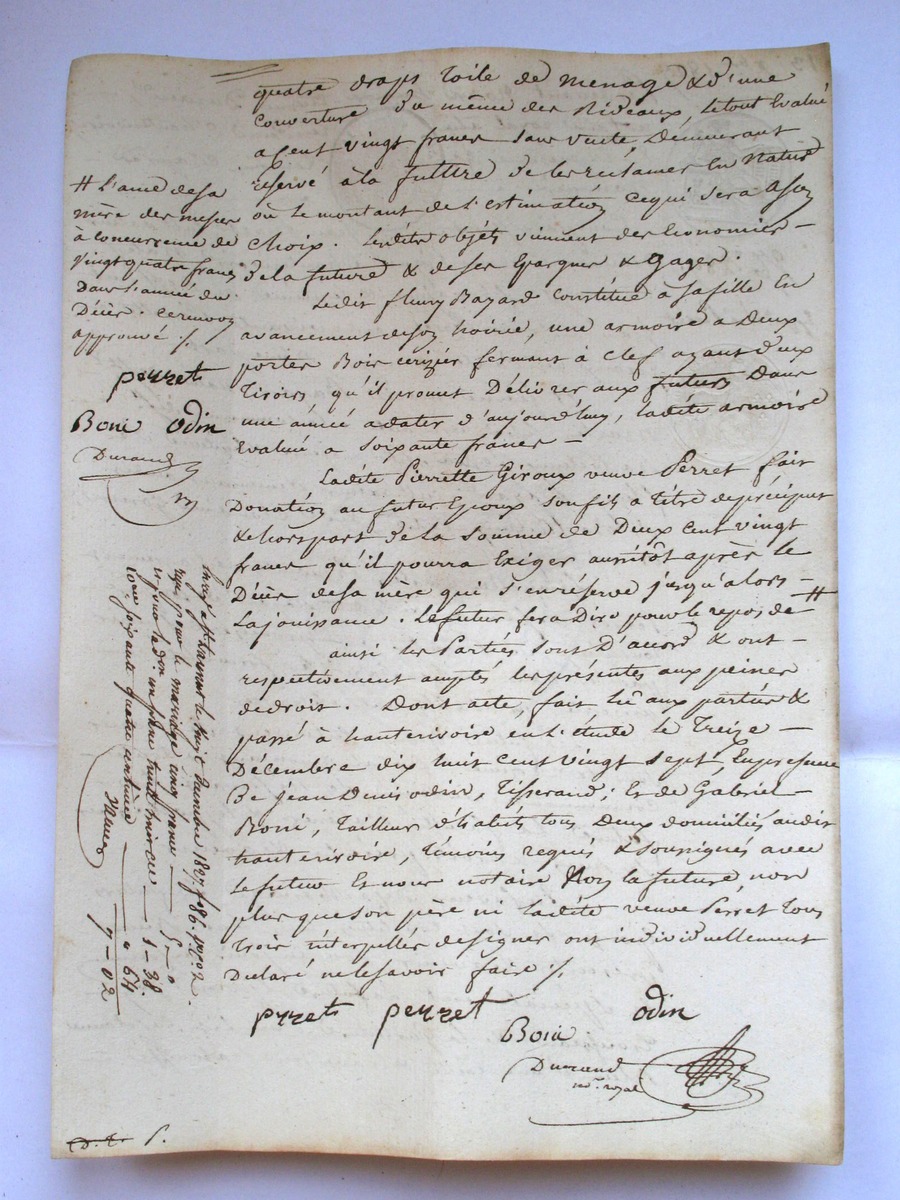 quatre draps toile de menage & d'une
couverture du même des Rideaux, le tout Evalué
a Cent vingt francs sans vente, Demeurant
reservé à la future de les reclamer En Nature
où le montant de l'estimation ce qui sera a son
choix. Lesdits objets viennent des Economies –
de la future & de ses Epargnes & Gages.
Ledit fleury Bazard Constitue à sa fille En
avancement de son hoirie, une armoire a Deux
portes Bois cerizier fermant à clef ayant deux
Tiroirs qu'il promet Délivrer aux futurs Dans
une année a dater d'aujourd'huy, ladite armoire
Evalué a soixante francs –
Ladite Pierrette Giroux veuve Perret fait
Donation au futur Epoux son fils a titre de préciput
& hors part de la somme de Deux cent vingt
francs qu'il pourra Exiger aussitôt après le
Décès de sa mère qui s'en réserve jusqu'alors –
La jouissance. Le futur fera Dire pour le repos de #
ainsi les Parties sont D'accord & ont –
respectivement accepté les présentes aux peines
de droit. Dont acte, fait lû aux parties &
passé à hauterivoire en l'étude le Treize –
Décembre dix huit cent vingt sept, En presence
De jean Denis odin, Tisserand; Et de Gabriel –
Boni, Tailleur d'habits tous Deux domiciliés audit
hauterivoire, Témoins requis & soussignés avec
Le futur Et nous notaire Non la future, non
plus que son père ni ladite veuve Perret tous
trois interpellés de signer ont individuellement
Déclaré ne le savoir faire ./.
perret odin
Boni
Durand
not. royal
# L'ame de sa
mère des messes
à concurrence de
vingt quatre francs
Dans l'année du
Décès. ce renvoy
approuvé ./.
perret
Boni odin
Durand
Enreg.
1827 f° 86
pour le mariage cinq francs — 5 – 0
un franc trente huit — 1 – 38
soixante quatre centimes — 0 64
7 – 02